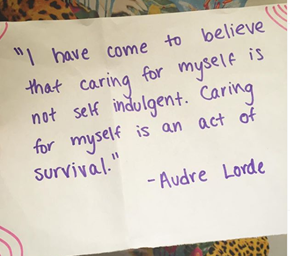 "I have come to believe
that caring for myself is
not self indulgent. Caring
for myself is an act of
survival."
-Audre Lorde